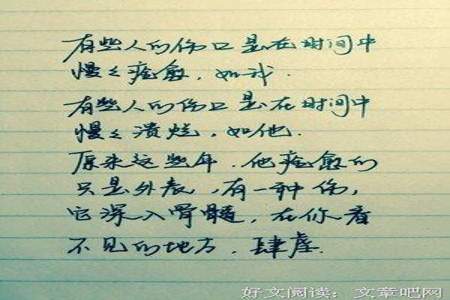 有些人的伤口是在时间中
慢慢痊愈，如我.
有些人的伤口是在时间中
慢慢溃烂，如他.
原来这些年，他痊愈的
只是外表，有一种伤，
它深入骨髓，在你看
不见的地方，肆虐.
好文阅读：文章吧网